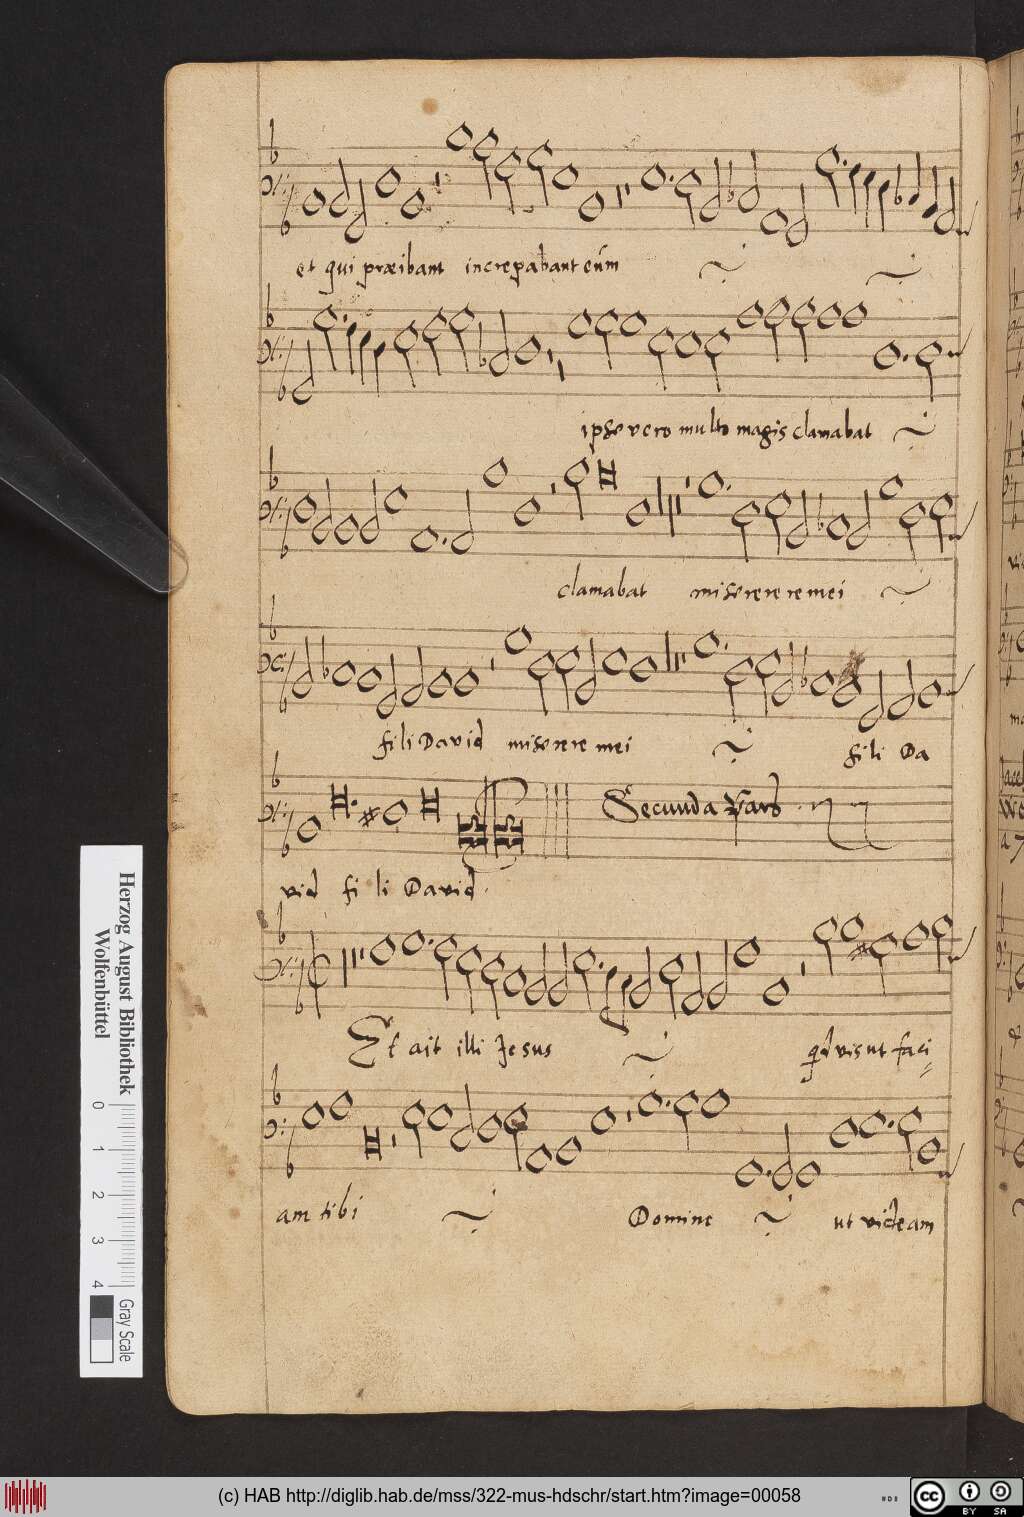 et qui præibant increpabant eum
ipse vero multo magis clamabat
clamabat miserere mei
fili David miserere mei fili Da
vid fi li David.
Secunda Pars
Et ait illi Jesus qd vis ut faci=
am tibi Domine ut videam
Herzog August Bibliothek
Wolfenbüttel
0 1 2 3 4 Gray Scale
(c) HAB http://diglib.hab.de/mss/322-mus-hdschr/start.htm?image=00058
cc BY SA